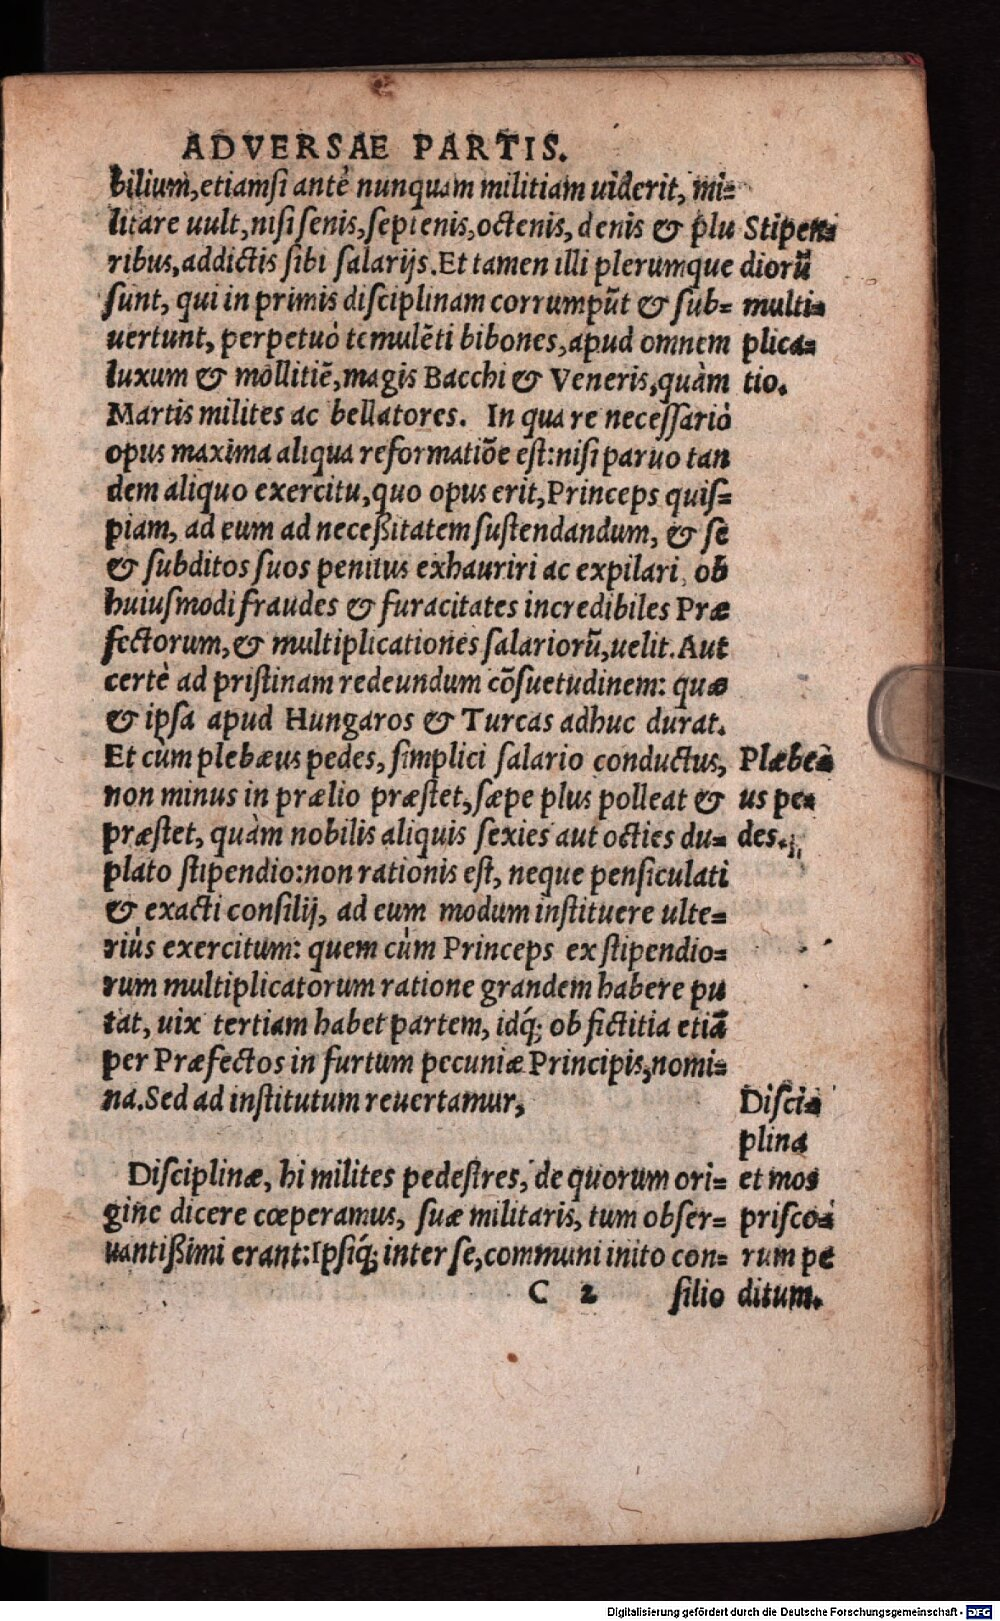 ADVERSAE PARTIS.
bilium, etiamsi antè nunquam militiam uiderit, mi=
litare uult, nisi senis, septenis, octenis, denis & plu
ribus, addictis sibi salarijs. Et tamen illi plerumque
sunt, qui in primis disciplinam corrumpũt & sub=
uertunt, perpetuò temulẽti bibones, apud omnem
luxum & mollitiẽ, magis Bacchi & Veneris, quàm
Martis milites ac bellatores. In qua re necessariò
opus maxima aliqua reformatiõe est: nisi paruo tan
dem aliquo exercitu, quo opus erit, Princeps quis=
piam, ad eum ad neceßitatem sustendandum, & se
& subditos suos penitus exhauriri ac expilari, ob
huiusmodi fraudes & furacitates incredibiles Præ
fectorum, & multiplicationes salariorũ, uelit. Aut
certè ad pristinam redeundum cõsuetudinem: quæ
& ipsa apud Hungaros & Turcas adhuc durat.
Et cùm plebæus pedes, simplici salario conductus,
non minus in prælio præstet, sæpe plus polleat &
præstet, quàm nobilis aliquis sexies aut octies du=
plato stipendio: non rationis est, neque pensiculati
& exacti consilij, ad eum modum instituere ulte=
riùs exercitum: quem cùm Princeps ex stipendio=
rum multiplicatorum ratione grandem habere pu
tat, uix tertiam habet partem, idq́; ob fictitia etiã
per Præfectos in furtum pecuniæ Principis, nomi=
na. Sed ad institutum reuertamur,
Disciplinæ, hi milites pedestres, de quorum ori=
gine dicere cœperamus, suæ militaris, tum obser=
uantißimi erant: Ipsiq́; inter se, communi inito con=
C 2 silio
Stipen=
diorũ
multi=
plica=
tio.
Plæbe=
us pe=
des.
Disci=
plina
et mos
prisco=
rum pe
ditum.
Digitalisierung gefördert durch die Deutsche Forschungsgemeinschaft - DFG